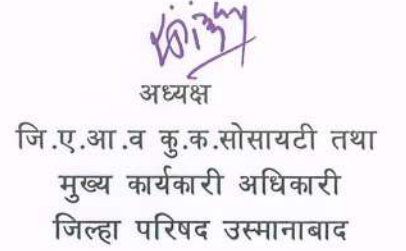 अध्यक्ष
जि.ए.आ.व कु.क.सोसायटी तथा
मुख्य कार्यकारी अधिकारी
जिल्हा परिषद उस्मानाबाद